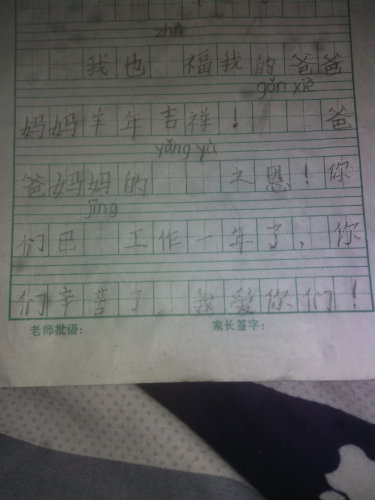 zhù
我也 福我的爸爸
gǎn xiè
妈妈羊年吉祥！ 爸
yǎng yù
爸妈妈的 之恩！你
jīng
们已 工作一年了，你
们辛苦了。我爱你们！
老师批语： 家长签字：